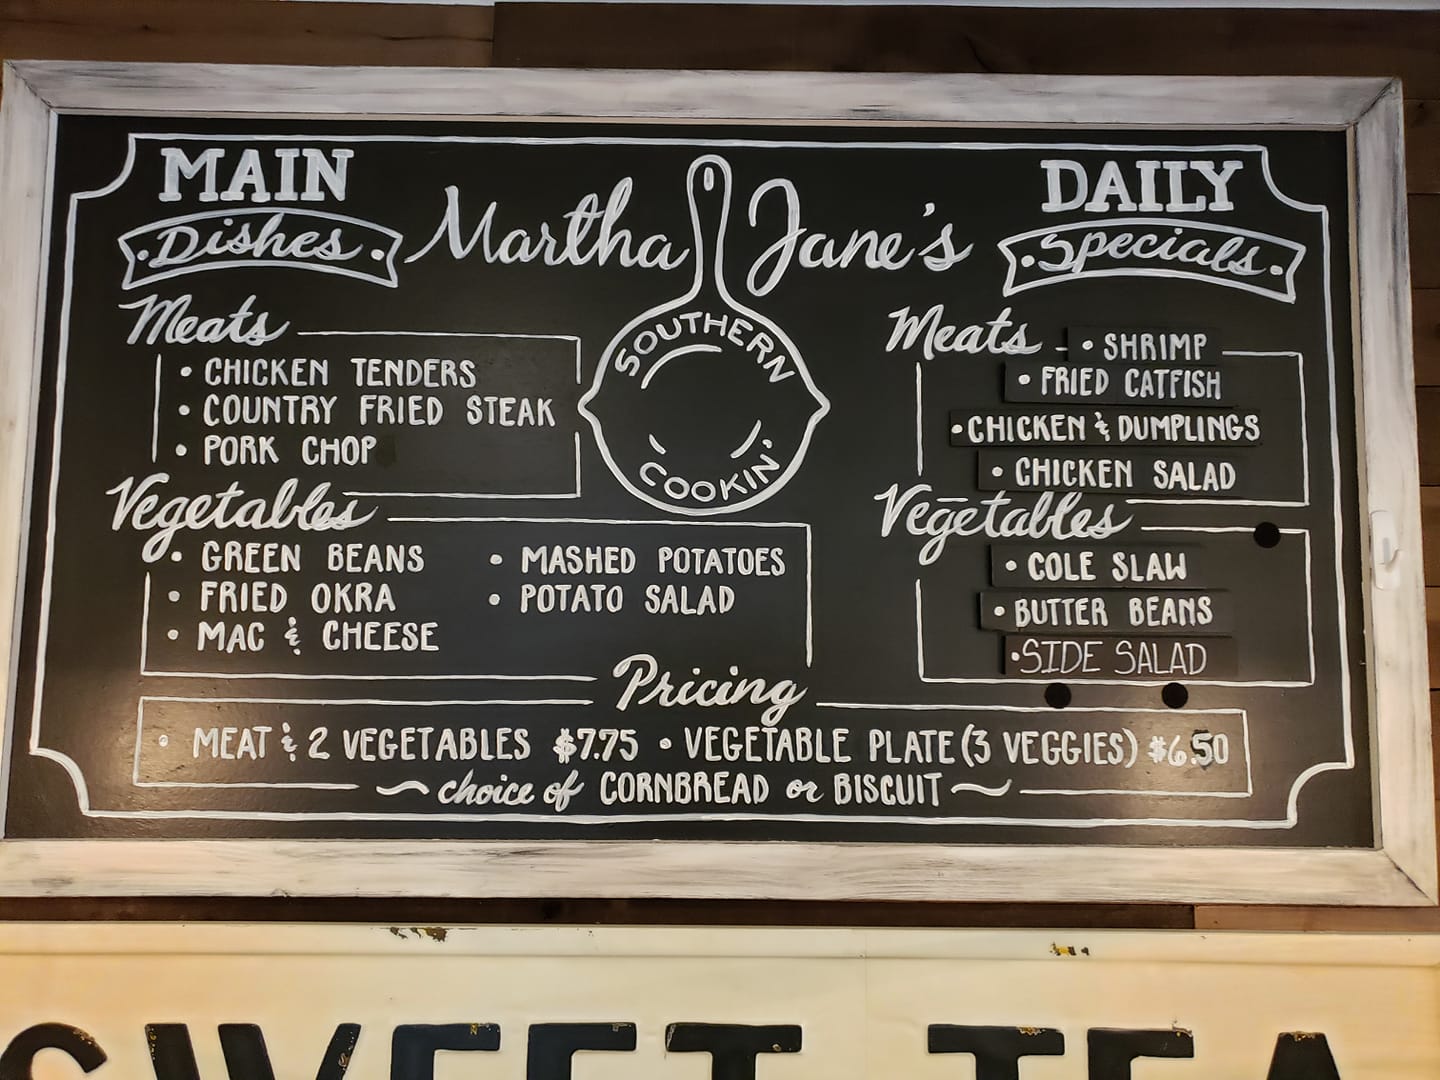 MAIN
Dishes
Martha Jane's
SOUTHERN
COOKIN'
Meats
• CHICKEN TENDERS
• COUNTRY FRIED STEAK
• PORK CHOP
Vegetables
• GREEN BEANS
• FRIED OKRA
• MAC & CHEESE
• MASHED POTATOES
• POTATO SALAD
DAILY
Specials
Meats
• SHRIMP
• FRIED CATFISH
• CHICKEN & DUMPLINGS
• CHICKEN SALAD
Vegetables
• COLE SLAW
• BUTTER BEANS
• SIDE SALAD
Pricing
• MEAT & 2 VEGETABLES $7.75 • VEGETABLE PLATE (3 VEGGIES) $6.50
choice of CORNBREAD or BISCUIT
SWEET TEA